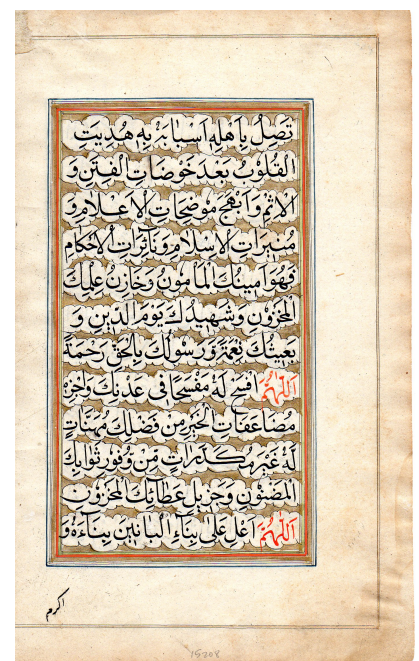 تَصِلُ بِاَهْلِهِ اَسْبَابَهُ بِهِ هُدِيَتِ
الْقُلُوبُ بَعْدَ خَوْضَاتِ الْفِتَنِ وَ
الْاِثْمِ وَاَبْهَجَ مُوضِحَاتِ الْاَعْلَامِ وَ
مُنِيرَاتِ الْاِسْلَامِ وَنَائِرَاتِ الْاَحْكَامِ
فَهُوَ اَمِينُكَ الْمَأْمُونُ وَخَازِنُ عِلْمِكَ
الْمَخْزُونِ وَشَهِيدُكَ يَوْمَ الدِّينِ وَ
بَعِيثُكَ نِعْمَةً وَرَسُولُكَ بِالْحَقِّ رَحْمَةً
اَللّٰهُمَّ افْسَحْ لَهُ مَفْسَحًا فِي عَدْنِكَ وَاجْزِهِ
مُضَاعَفَاتِ الْخَيْرِ مِنْ فَضْلِكَ مُهَنَّاتٍ
لَهُ غَيْرَ مُكَدَّرَاتٍ مِنْ وُفُورِ ثَوَابِكَ
الْمَضْنُونِ وَجَزِيلِ عَطَائِكَ الْمَخْزُونِ
اَللّٰهُمَّ اَعْلِ عَلٰى بِنَاءِ الْبَانِينَ بِنَاءَهُ وَ
اكرم
15208